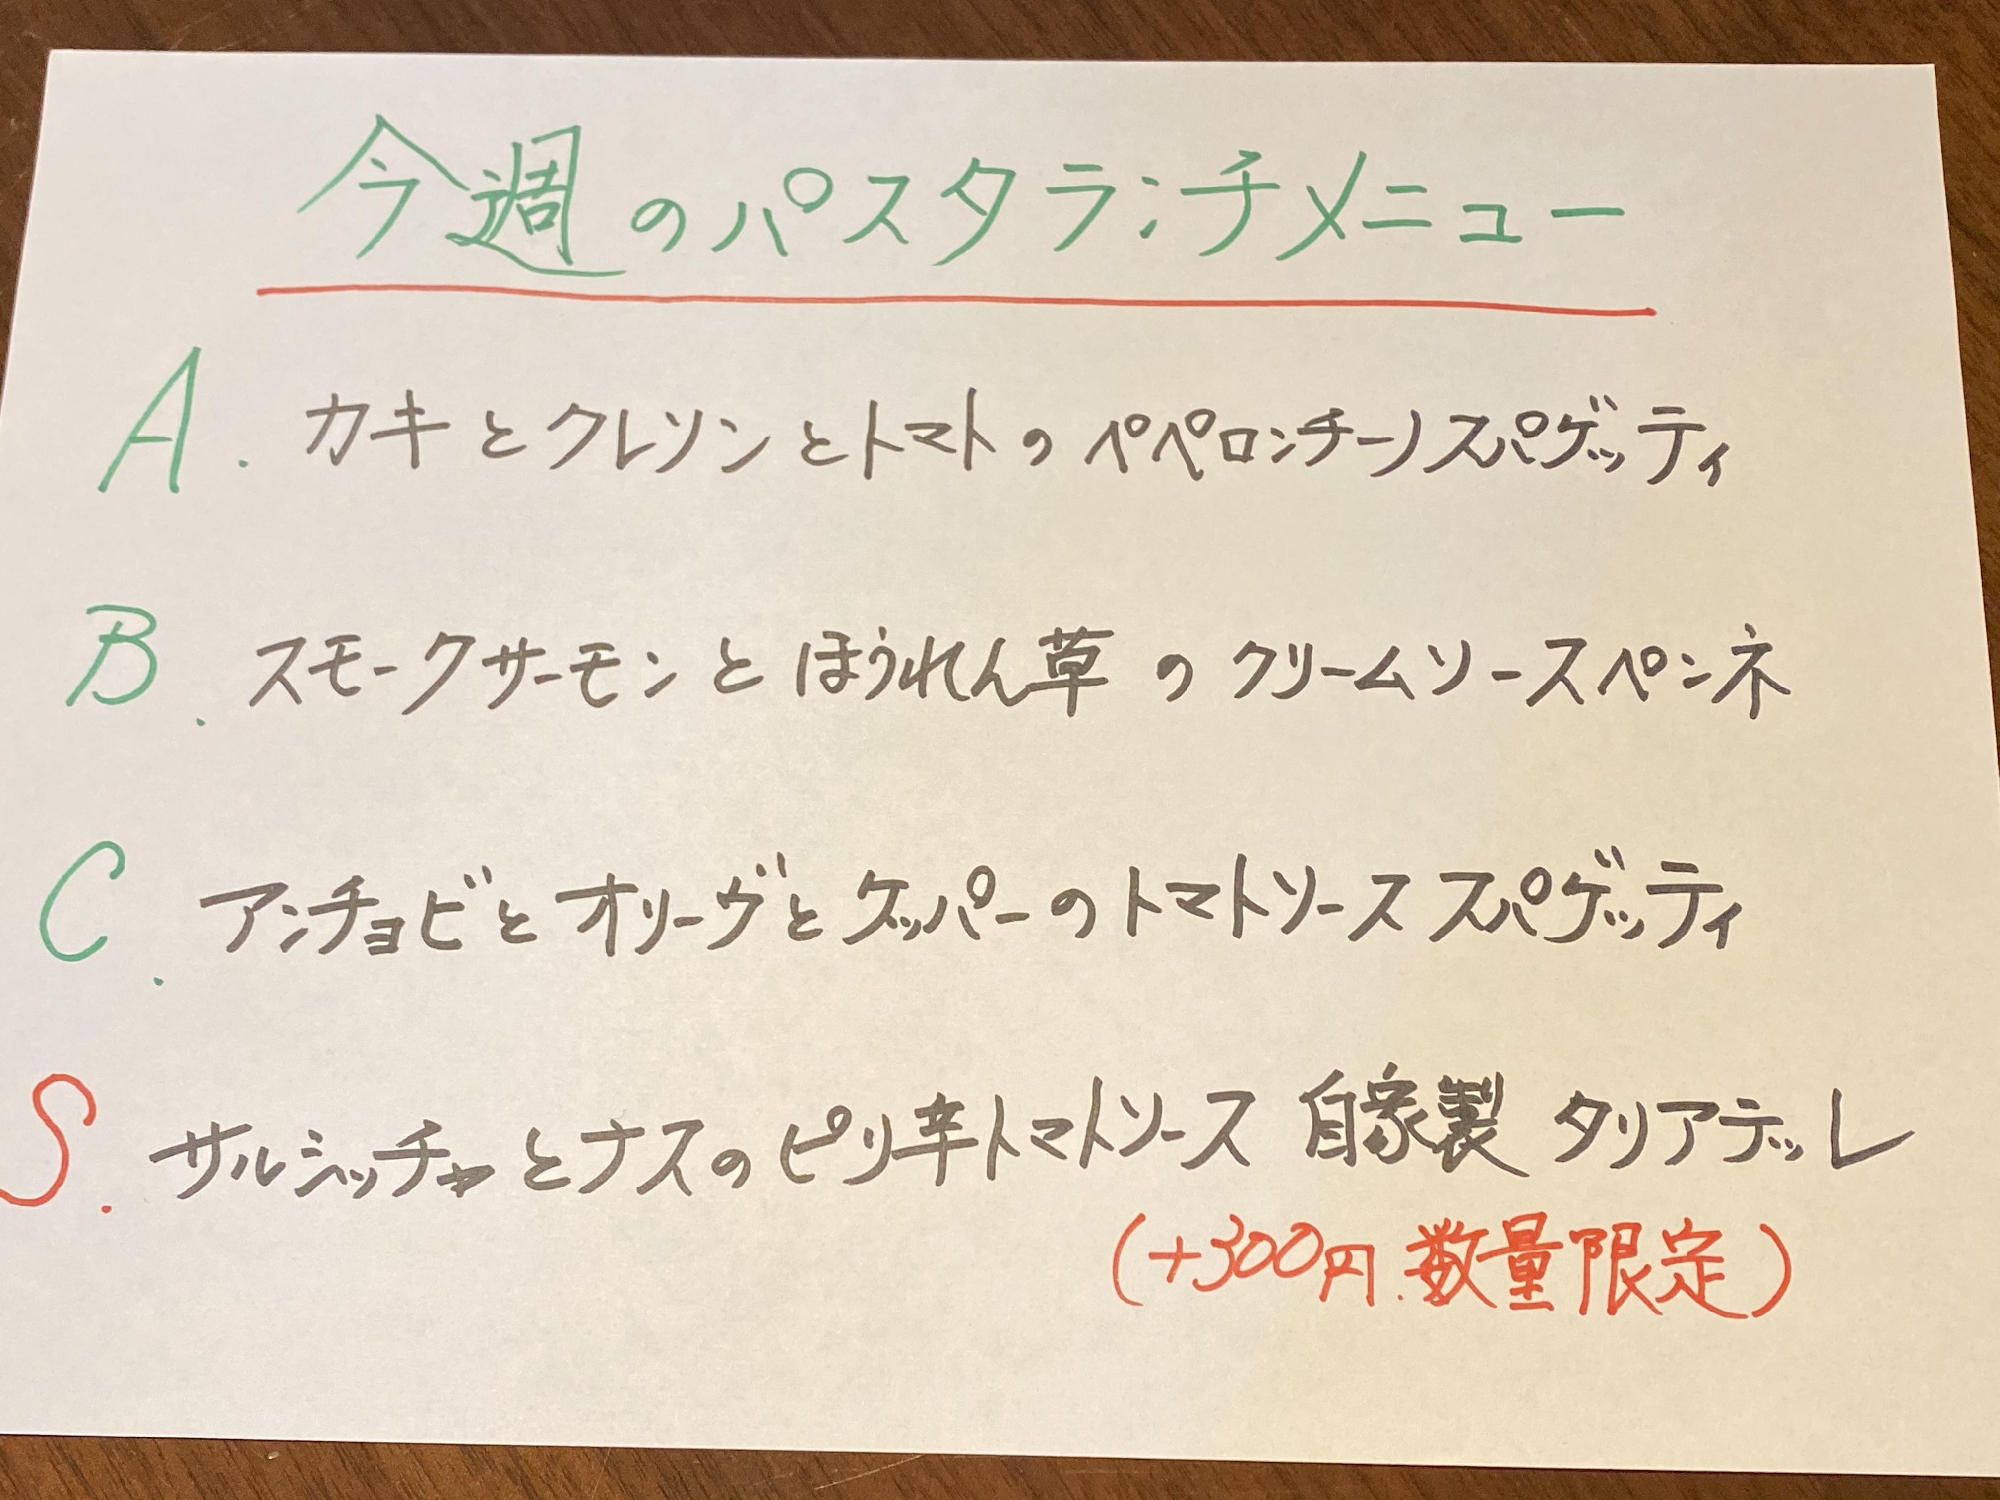 今週のパスタランチメニュー
A. カキとクレソンとトマトのペペロンチーノスパゲッティ
B. スモークサーモンとほうれん草のクリームソースペンネ
C. アンチョビとオリーヴとケッパーのトマトソーススパゲッティ
S. サルシッチャとナスのピリ辛トマトソース 自家製 タリアテッレ
(+300円.数量限定)